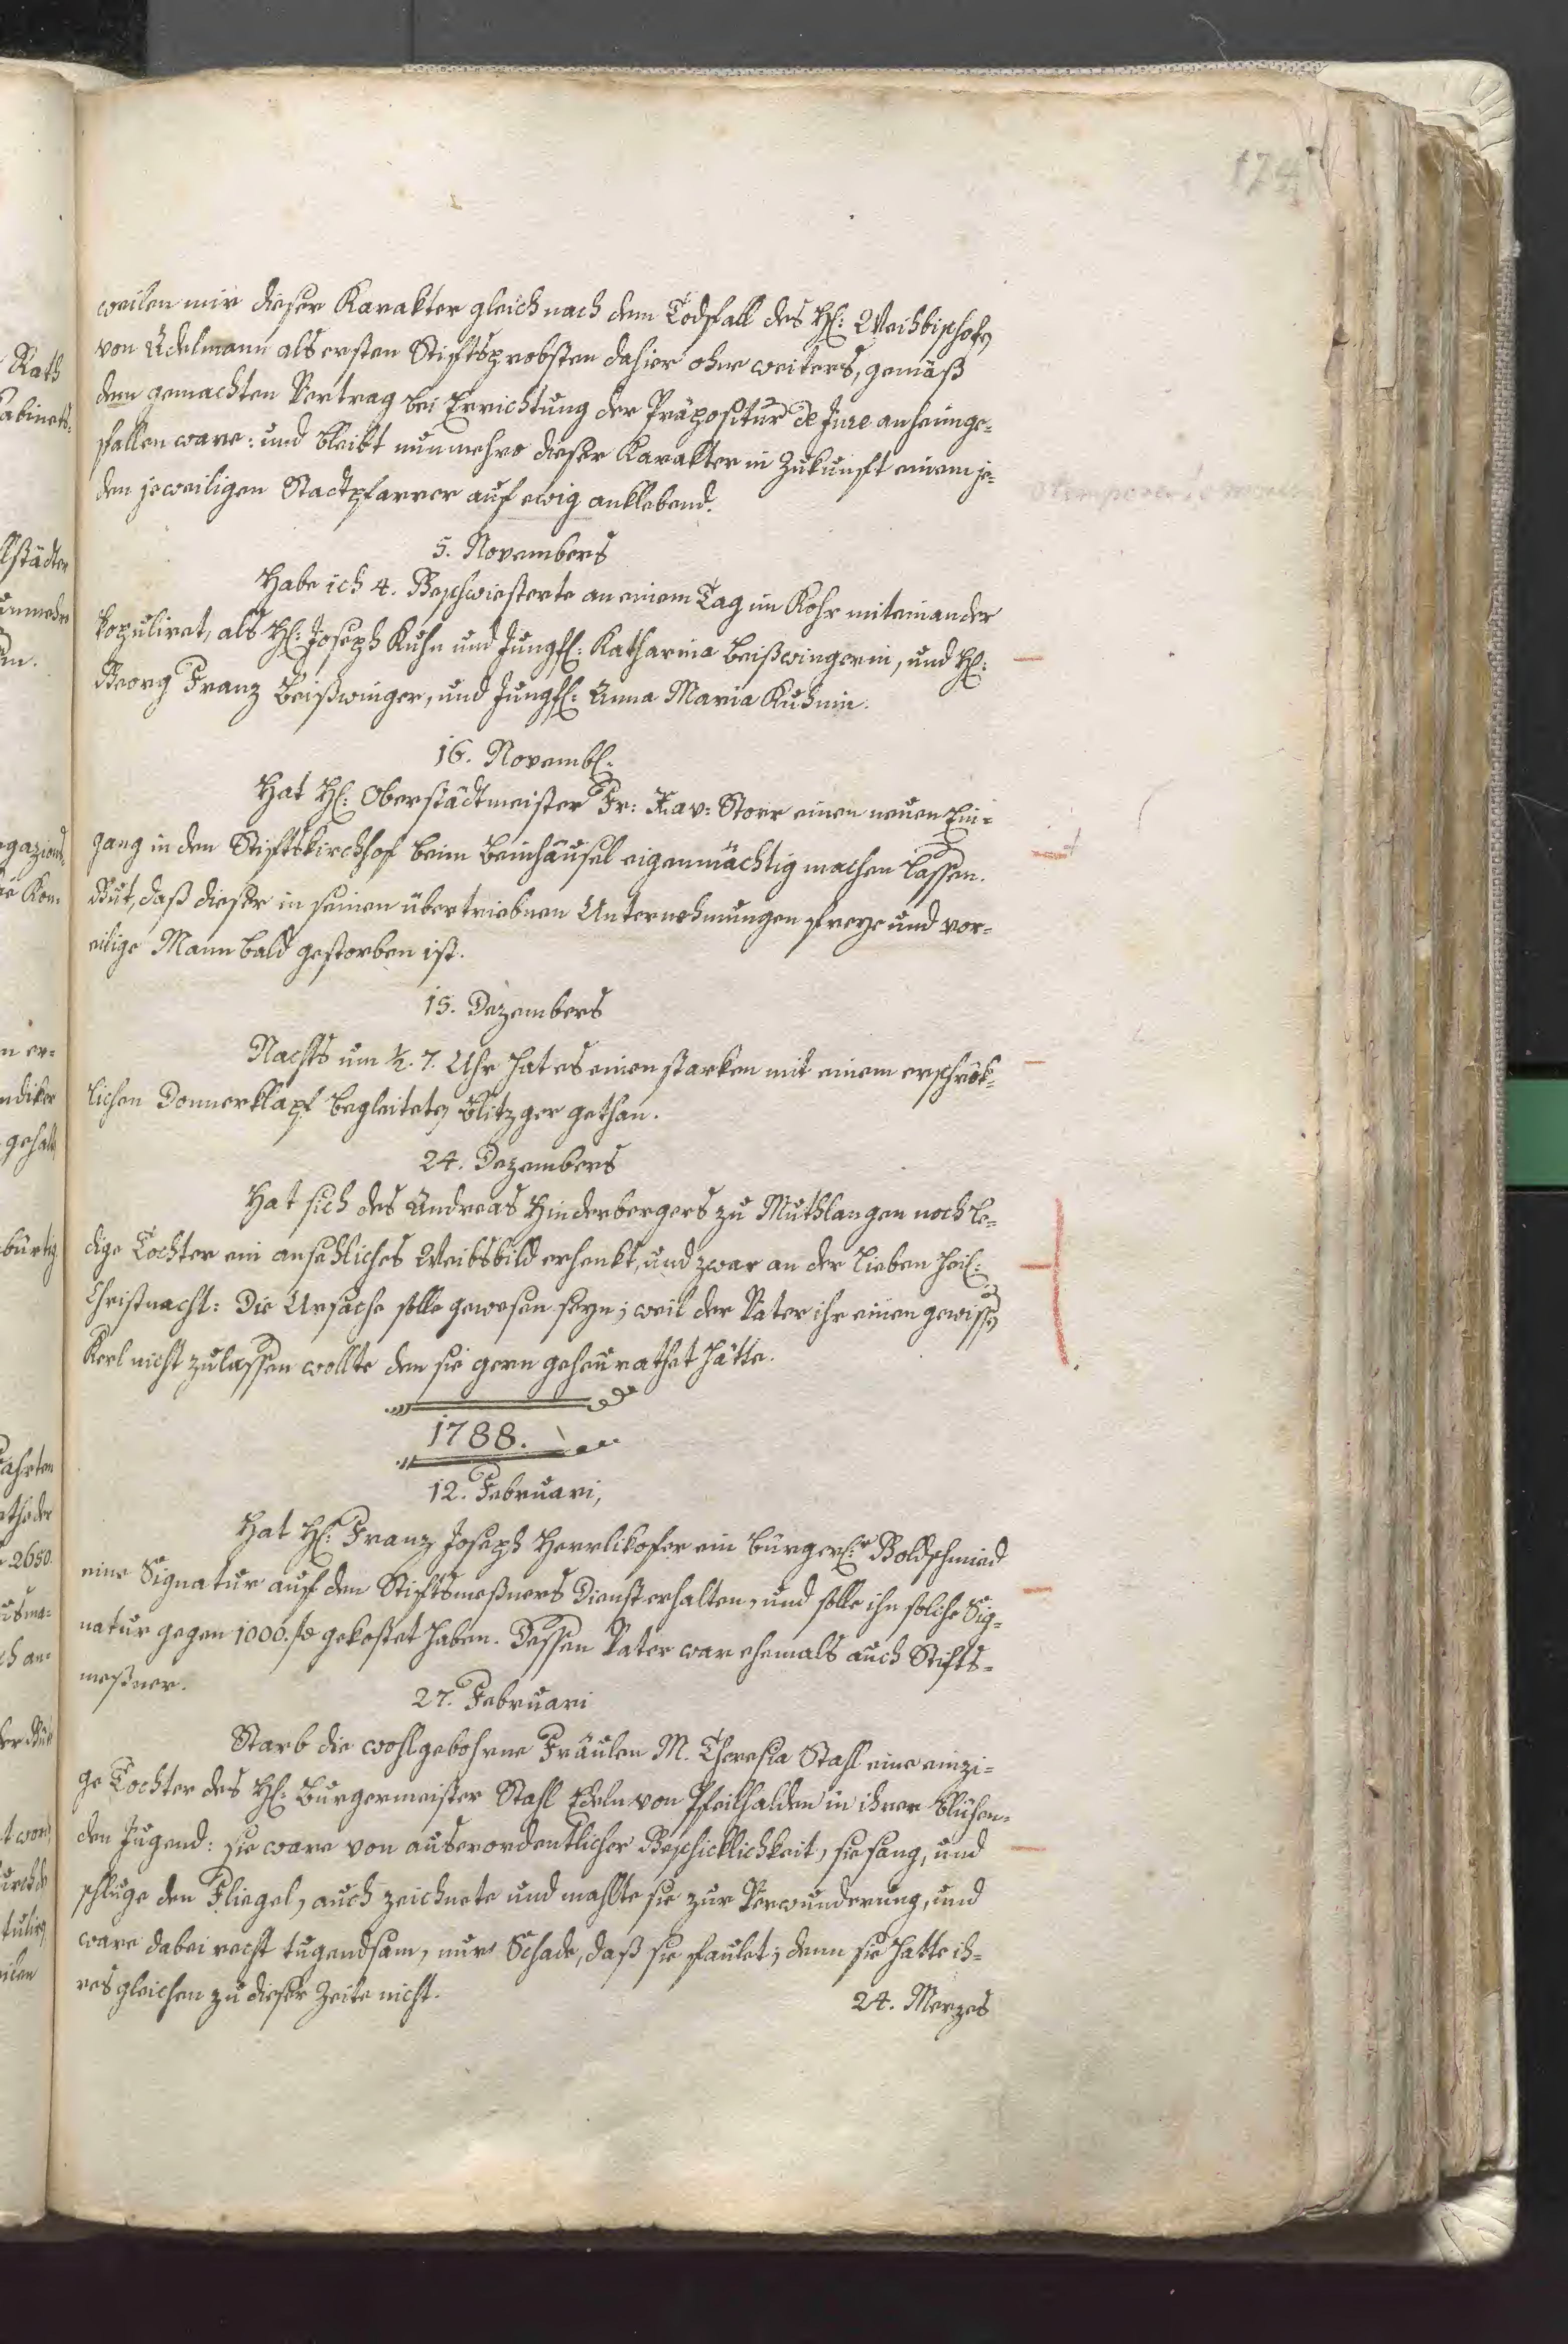 174
weilen mir dieser Karakter gleich nach dem Todsfall des H: Weihbischofs
von Adelmann als ersten Stiftsprobsten dahier ohne weiters, gemäß
dem gemachten Vertrag bei Errichtung der Präpositur de Jure anheimge-
fallen ware: und bleibt nunmehro dieser Karakter in Zukunft einem je-
den jeweiligen Stadtpfarrer auf ewig anklebend.
5. Novembers
Habe ich 4. Geschwisterte an einem Tag im Kohr miteinander
kopuliret, als H: Joseph Kuhn und Jungf: Katharina Beißwingerin, und H:
Georg Franz Beißwinger, und Jungf: Anna Maria Kuhnin.
16. Novemb:
Hat H: Oberstädtmeister Fr: Xav: Storr einen neuen Ein-
gang in den Stiftskirchhof beim Beinhäusel eigenmächtig machen lassen.
Gut, daß dieser in seinen übertriebnen Unternehmungen freye und vor-
eilige Mann bald gestorben ist.
15. Dezembers
Nachts um ½. 7. Uhr hat es einen starken mit einem erschrök-
lichen Donnerklapf begleiteten Blitzger gethan.
24. Dezembers
Hat sich des Andreas Hinderbergers zu Muthlangen noch le-
dige Tochter ein ansehliches Weibsbild erhenkt, und zwar an der lieben heil:
Christnacht: Die Ursache solle gewesen seyn; weil der Vater ihr einen gewissen
Kerl nicht zulassen wollte den sie gern geheurathet hätte.
1788.
12. Februari,
Hat H: Franz Joseph Herrlikofer ein bürgerl:r Goldschmied
eine Signatur auf den Stiftsmeßners Dienst erhalten, und solle ihn solche Sig-
natur gegen 1000. fl gekostet haben. Dessen Vater war ehemals auch Stifts-
meßner.
27. Februari
Starb die wohlgebohrne Fräulen M. Theresia Stahl eine einzi-
ge Tochter des H: Burgermeister Stahl Edeln von Pfeilhalden in ihrer blühen-
den Jugend: sie ware von auserordentlicher Geschicklichkeit, sie sang, und
schluge den Fliegel, auch zeichnete und mahlte sie zur Verwunderung, und
ware dabei recht tugendsam, nur Schade, daß sie faulet; denn sie hatte ih-
res gleichen zu dieser Zeite nicht.
24. Merzes